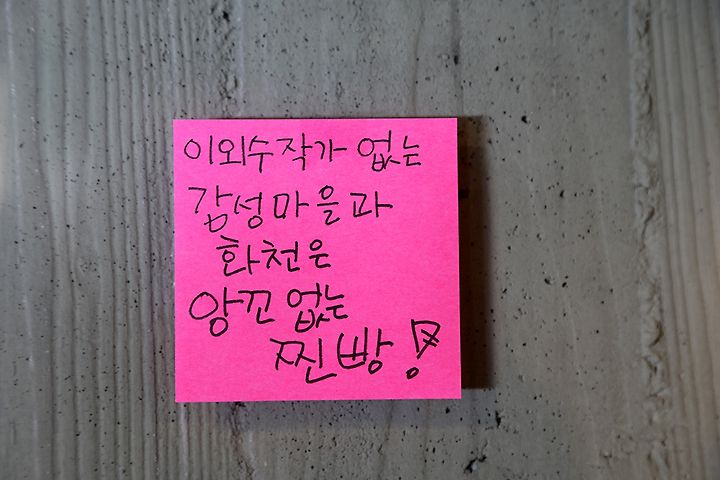 이외수작가 없는
감성마을과
화천은
앙꼬없는
찐빵!